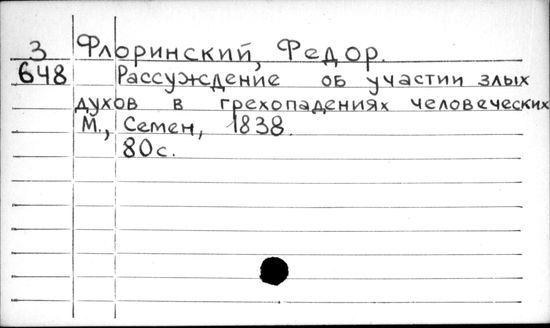 3 Флоринский, Федор.
648 Рассуждение об участии злых
духов в грехопадениях человеческих
М., Семен, 1838.
80с.